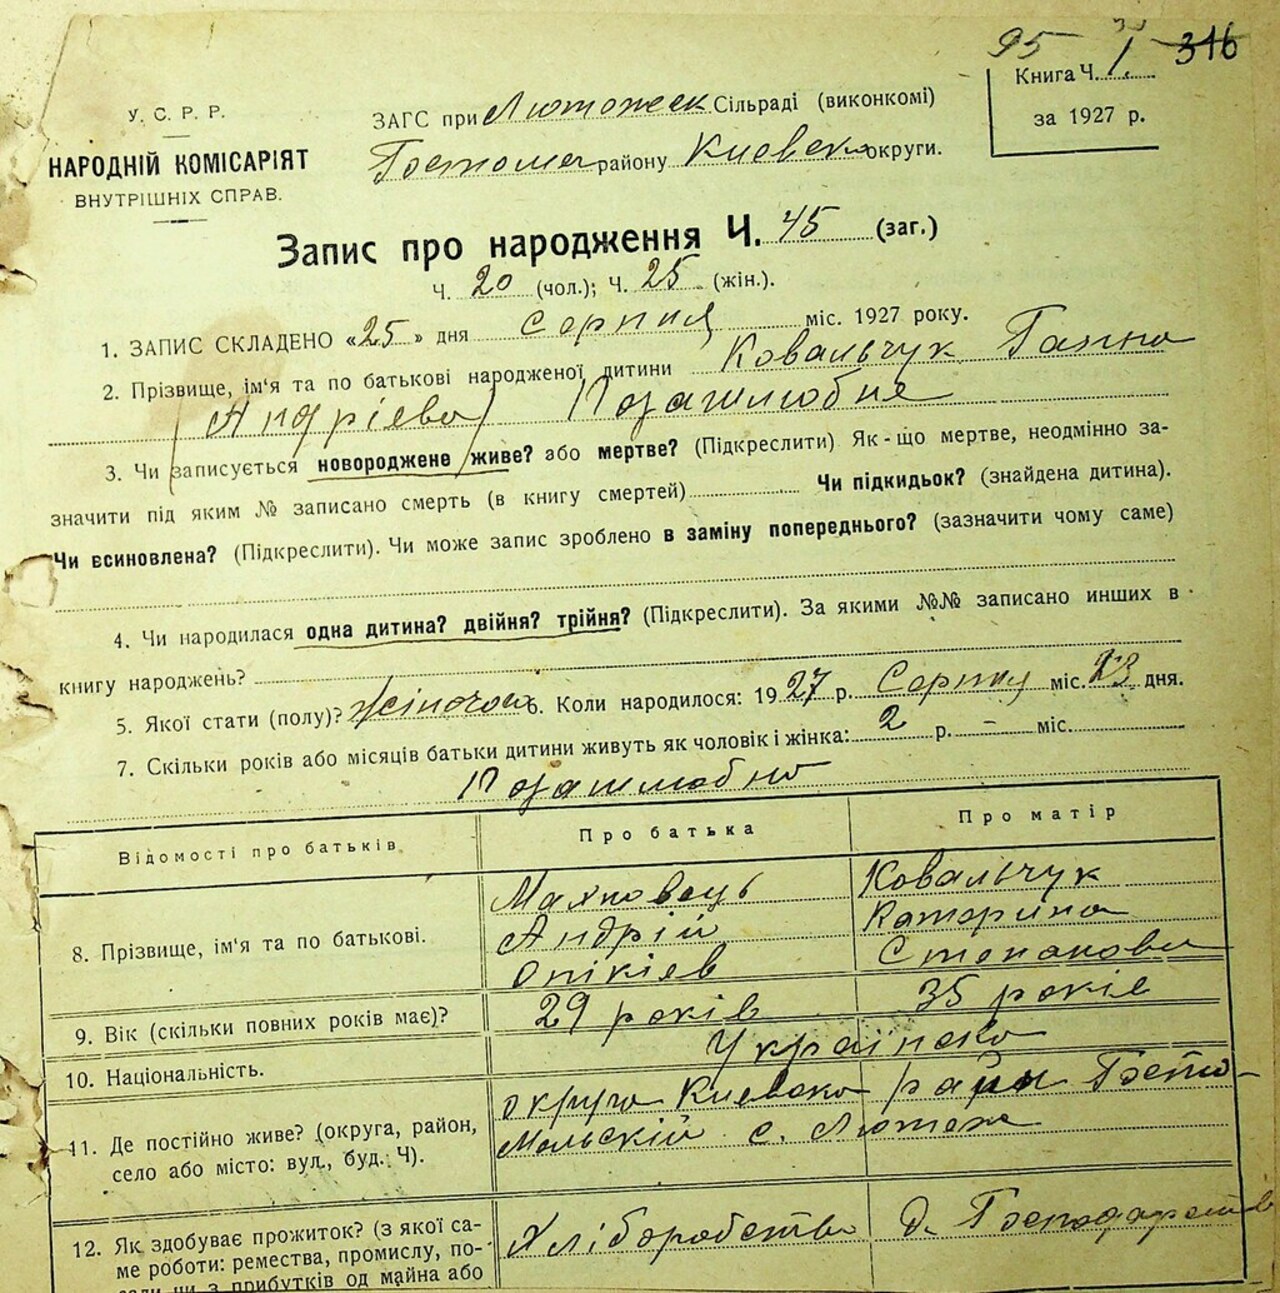 95 316
Книга Ч. 1.
за 1927 р.
У. С. Р. Р.
НАРОДНІЙ КОМІСАРІЯТ
ВНУТРІШНІХ СПРАВ.
ЗАГС при Лютожеск Сільраді (виконкомі)
Гостомел району Киевско округи.
Запис про народження Ч. 45 (заг.)
Ч. 20 (чол.); Ч. 25 (жін.).
1. ЗАПИС СКЛАДЕНО «25» дня Серпня міс. 1927 року.
2. Прізвище, ім'я та по батькові народженої дитини Ковальчук Ганна
(Андріева) Позашлюбне
3. Чи записується новороджене живе? або мертве? (Підкреслити) Як-що мертве, неодмінно за-
значити під яким № записано смерть (в книгу смертей) Чи підкидьок? (знайдена дитина).
Чи всиновлена? (Підкреслити). Чи може запис зроблено в заміну попереднього? (зазначити чому саме)
4. Чи народилася одна дитина? двійня? трійня? (Підкреслити). За якими №№ записано инших в
книгу народжень?
5. Якої стати (полу)? жіночої 6. Коли народилося: 1927 р. Серпня міс. 23 дня.
7. Скільки років або місяців батьки дитини живуть як чоловік і жінка: 2 р. – міс.
Позашлюбно
Відомості про батьків Про батька Про матір
8. Прізвище, ім'я та по батькові. Махновець Андрій Опікіев Ковальчук Катерина Степанови
9. Вік (скільки повних років має)? 29 років 35 років
10. Національність. Українсько
11. Де постійно живе? (округа, район, село або місто: вул., буд. Ч). округа Киевско район Госто-
мельскій с. Лютеж
12. Як здобуває прожиток? (з якої са-
ме роботи: ремества, промислу, по-
сади чи з прибутків од майна або
Хліборобство д. Господарств